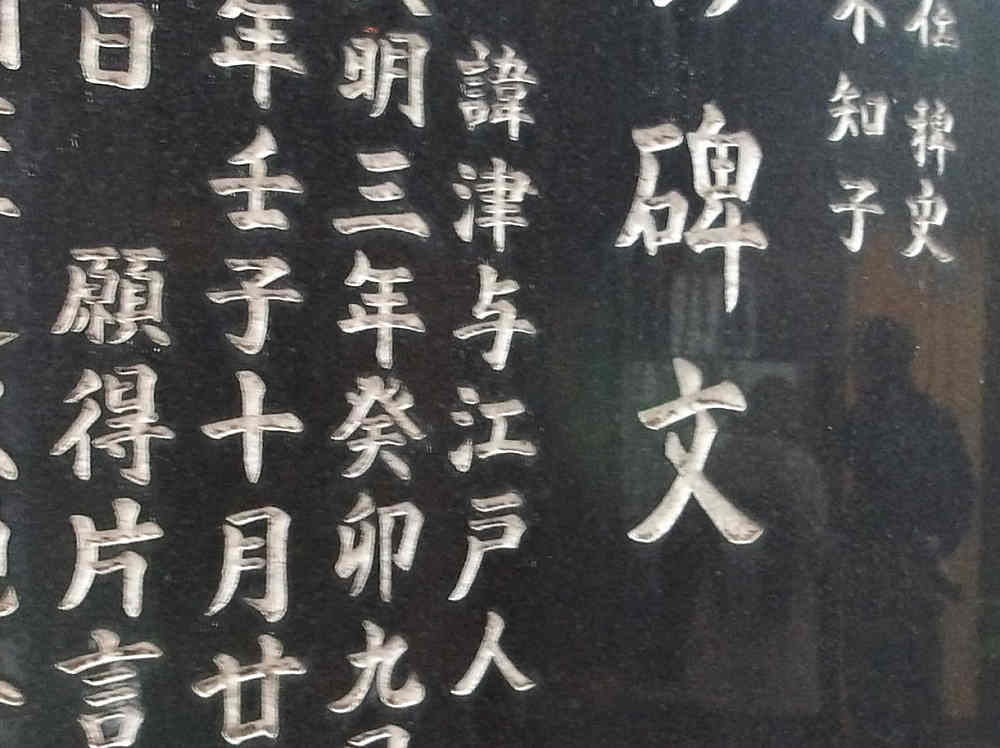 在稗史
不知子
碑文
諱津与江戸人
明三年癸卯九
年壬子十月廿
日 願得片言